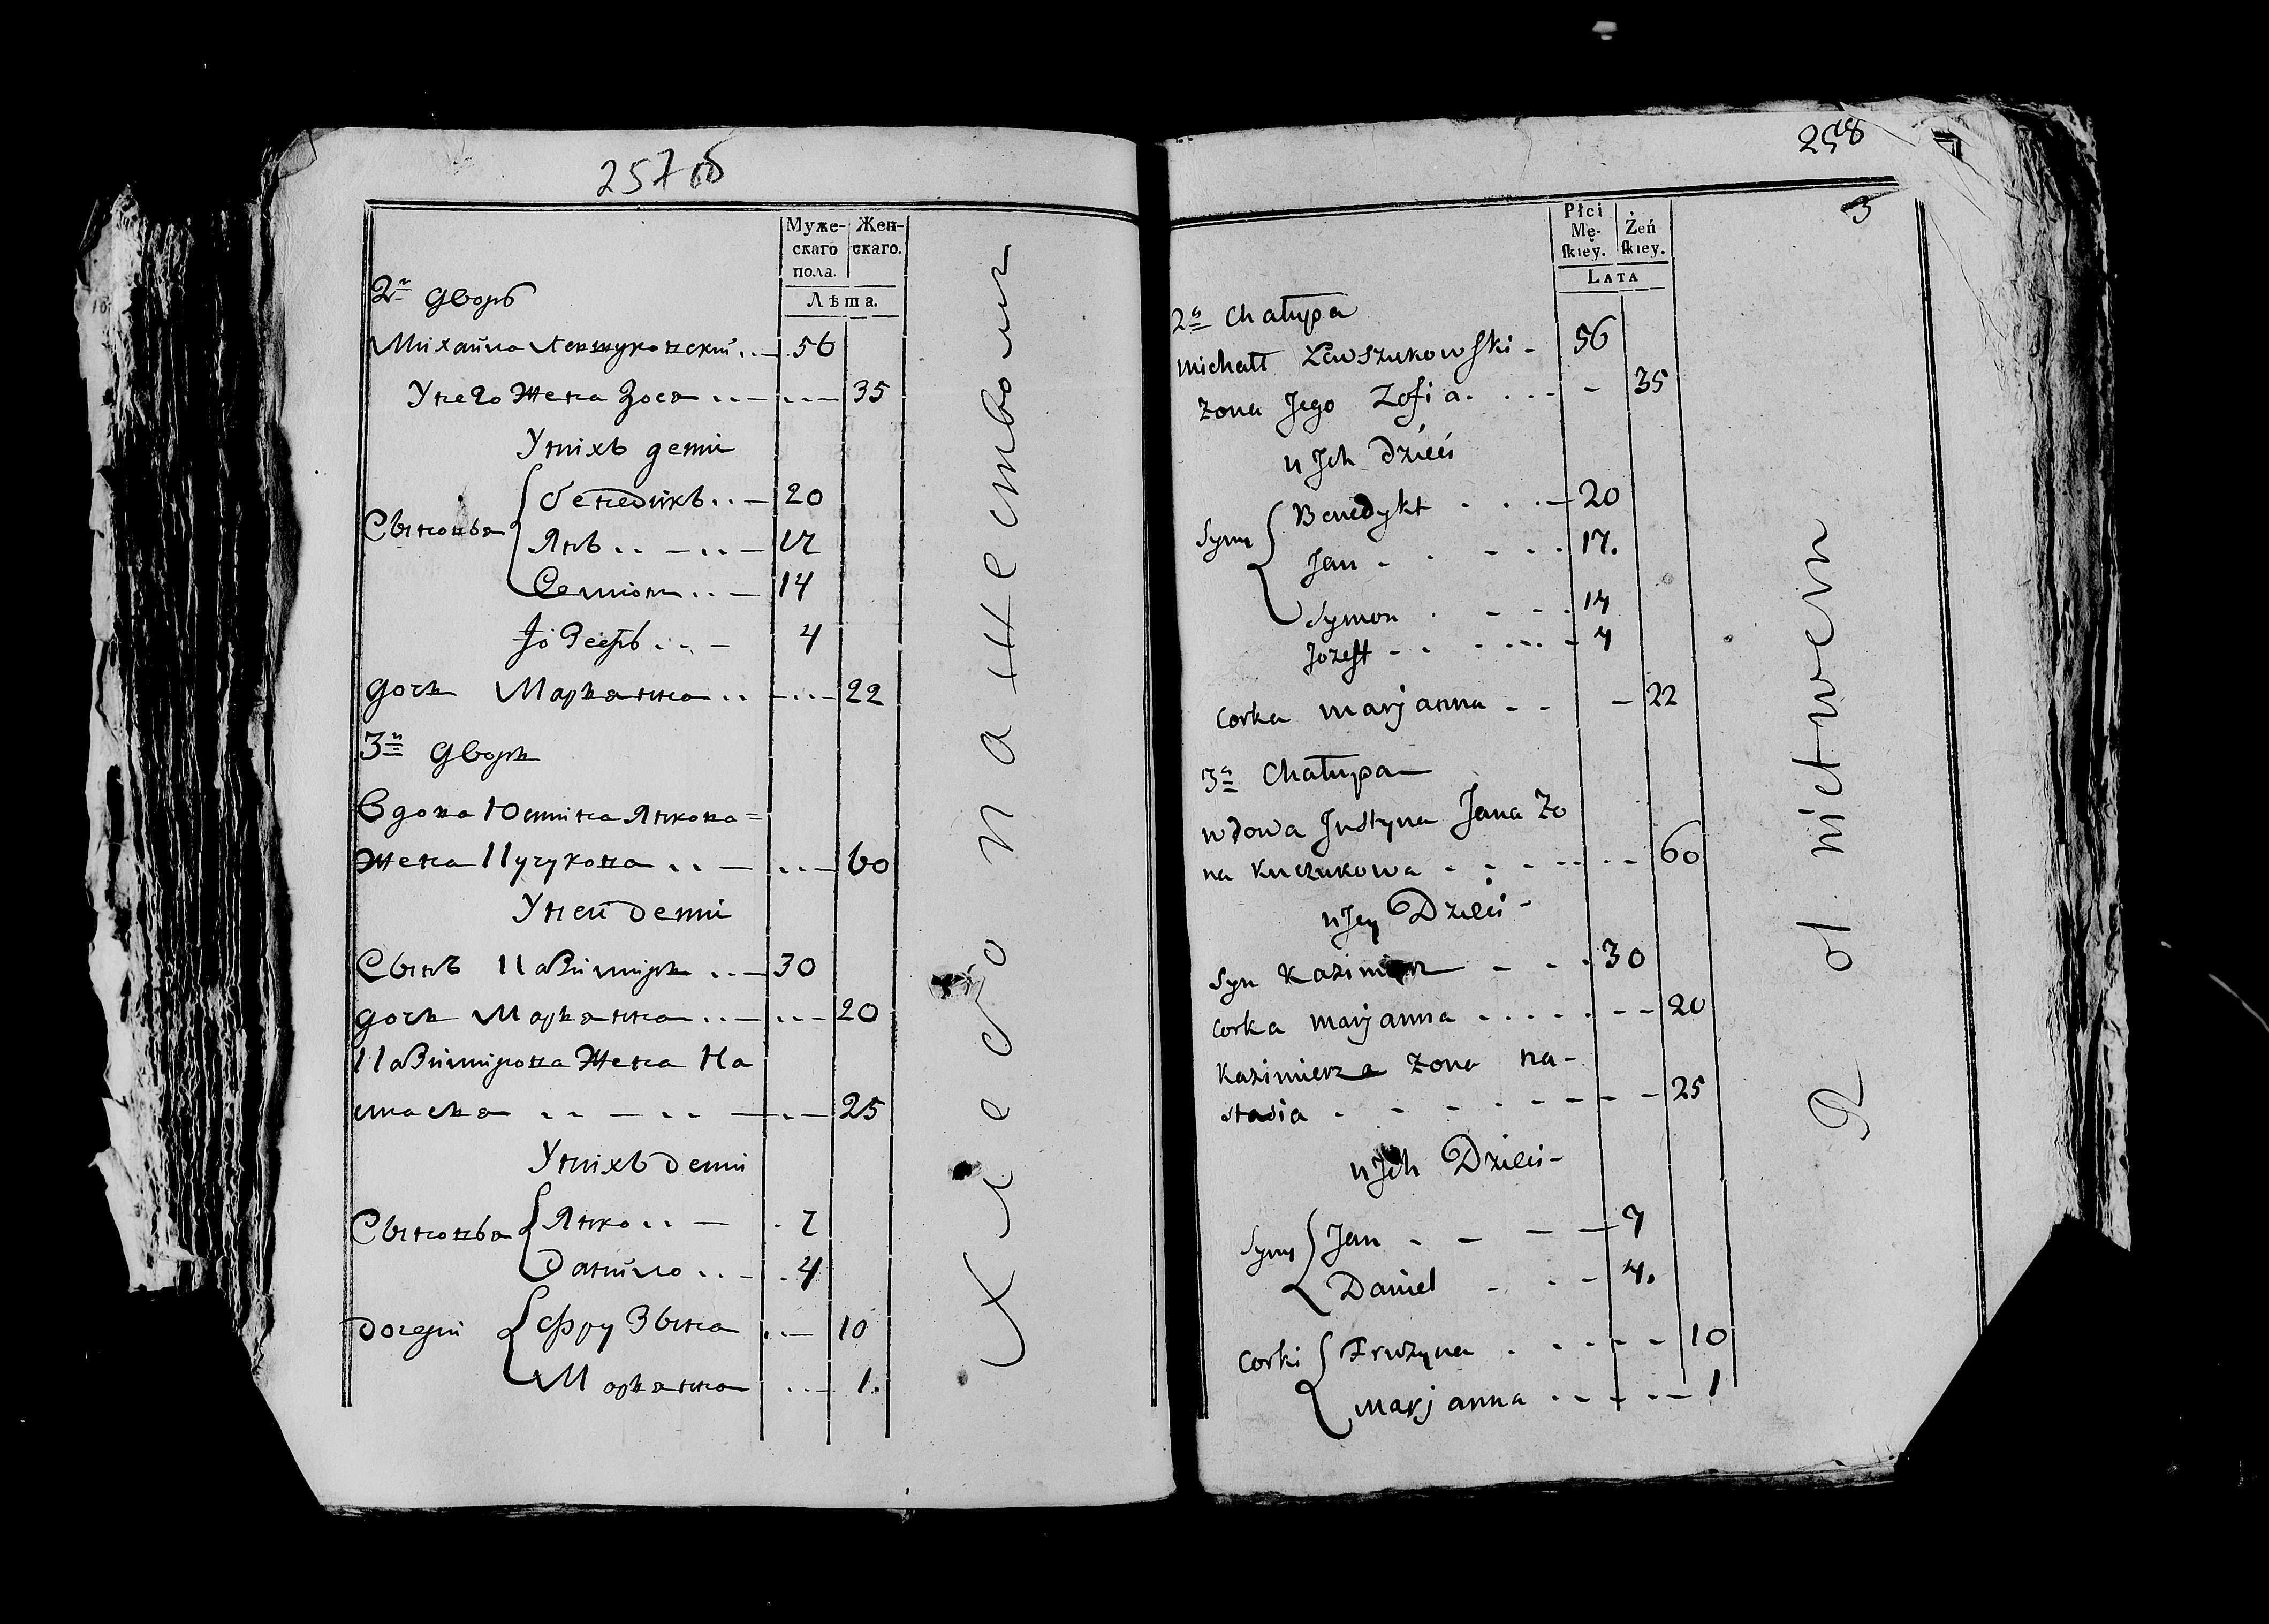 257об
Муже-
скаго
пола.
Жен-
скаго.
Лѣта.
2й дворъ
Михайла Левшуковский 56
У него жена Зося 35
У нихъ дети
Сыновья
Бенедикъ 20
Янъ 17
Семион 14
Іозефъ 4
дочь Марьянна 22
3й дворь
Вдова Юстина Янкова=
жена Кучукова 60
У ней дети
Сынъ Казимирь 30
дочь Марьянна 20
Казимирова жена На
стасья 25
У нихъ дети
Сыновья
Янко 7
Данило 4
дочери
Фрузына 10
Марьянна 1.
Хлебопашеством
258
3
Płci
Mę-
ſkiey.
Żeń
ſkiey.
LATA
2a Chałupa
Michałł Lewszukowski 56
zona Jego Zofia 35
u Jch Dzieci
Syny
Benedykt 20
Jan 17.
Symon 14
Jozeff 4
Corka Marjanna 22
3a Chałupa
wdowa Justyna Jana Zo
na Kuczukowa 60
u Jey Dzieci
Syn Kazimierz 30
Corka Marjanna 20
Kazimierza zona Na-
stasia 25
u Jch Dzieci
Syny
Jan 7
Daniel 4.
Corki
Fruzyna 10
Marjanna 1
Rolnictwem